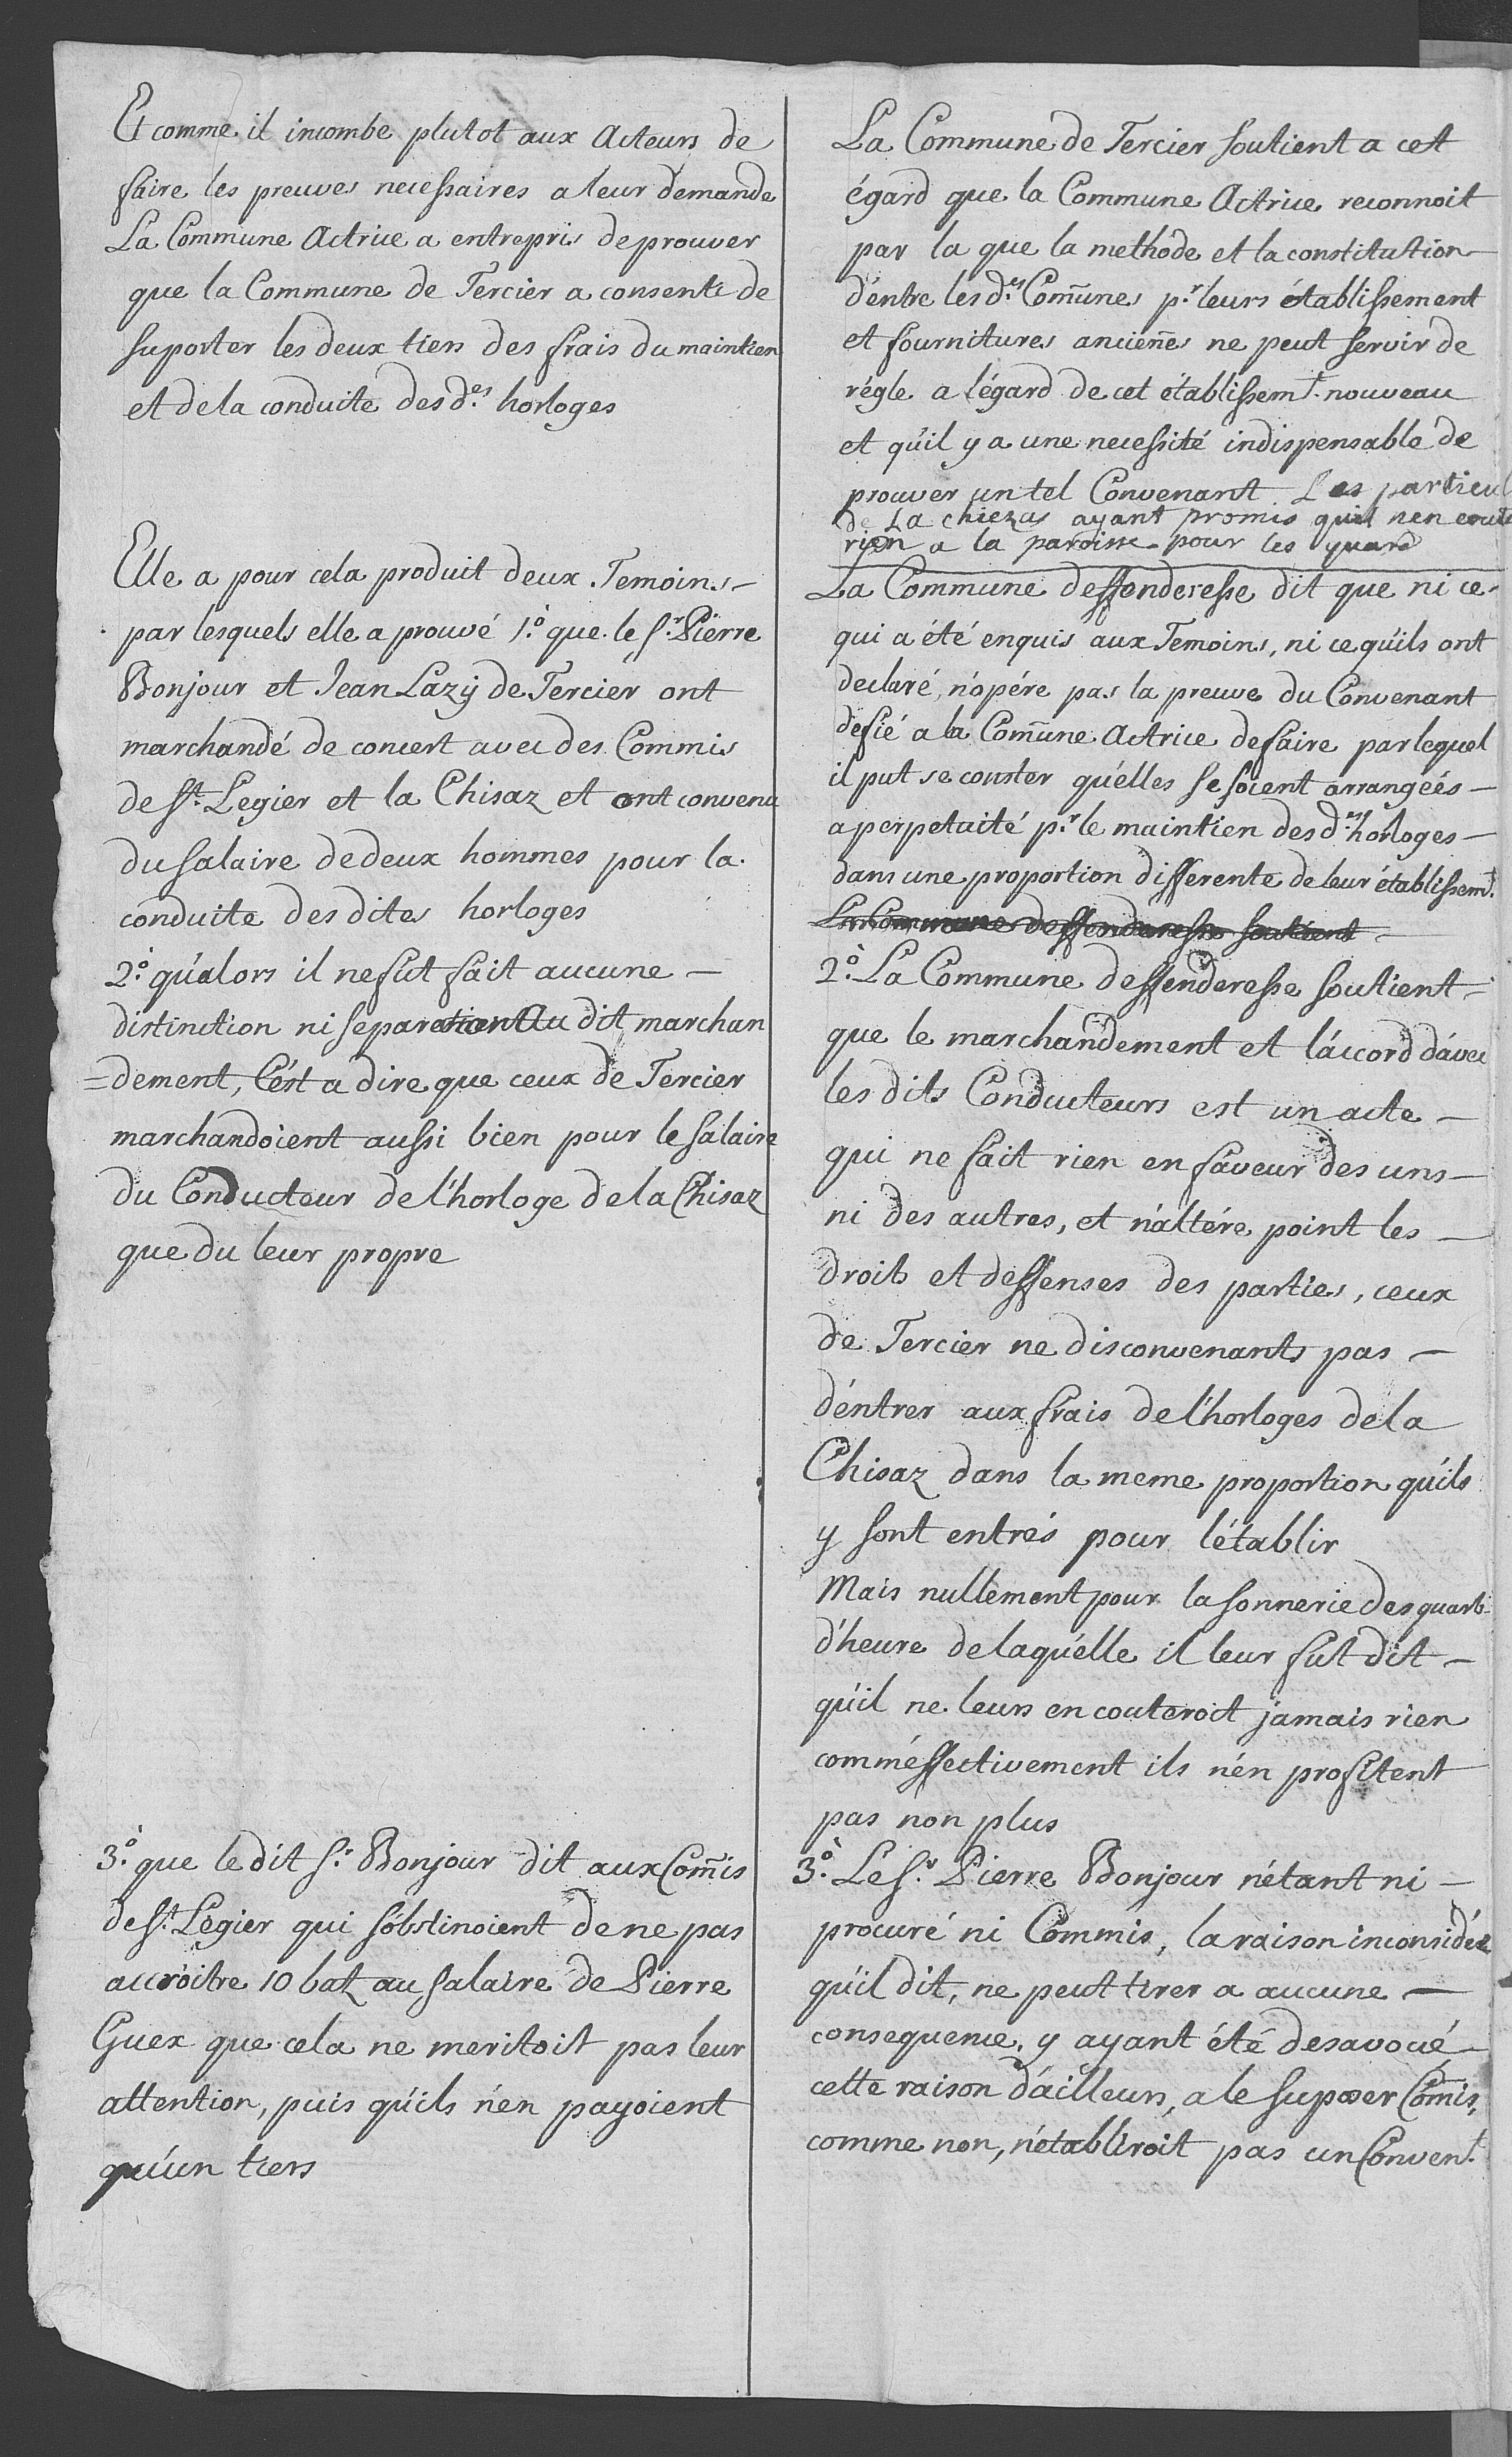 Et comme il incombe plutot aux Acteurs de
faire les preuves necessaires a leur demande
La Commune Actrice a entrepris de prouver
que la Commune de Tercier a consenti de
suporter les deux tiers des frais du maintien
et de la conduite des d.es horloges
Elle a pour cela produit deux Temoins –
par lesquels elle a prouvé 1.o que le S.r Pierre
Bonjour et Jean Lazÿ de Tercier ont
marchandé de concert avec des Commis
de S.t Legier et la Chisaz et ont convenu
du salaire de deux hommes pour la
conduite des dites horloges
2.o qu'alors il ne fut fait aucune –
distinction ni separation Au dit marchan
=dement, C'ést a dire que ceux de Tercier
marchandoient aussi bien pour le salaire
du Conducteur de l'horloge de la Chisaz
que du leur propre
3.o que le dit S.r Bonjour dit aux Com̄is
de S.t Légier qui s'obstinoient de ne pas
accroitre 10 batz au salaire de Pierre
Guex que cela ne meritoit pas leur
attention, puis qu'ils n'én payoient
qu'un tiers
La Commune de Tercier soutient a cet
égard que la Commune Actrice reconnoit
par la que la methode et la constitution
d'entre les d.es Com̄unes p.r leurs établissement
et fournitures ancien̄es ne peut servir de
régle a l'égard de cet établissem.t nouveau
et qu'il y a une necessité indispensable de
prouver un tel Convenant Les particul
de La chiezas ayant promis quil nen coute
rien a la paroisse pour les quard
La Commune deffenderesse dit que ni ce
qui a été enquis aux Temoins, ni ce qu'ils ont
declaré, n'opére pas la preuve du Convenant
defié a la Com̄une Actrice de faire par lequel
il put se conster qu'elles se soient arrangéés –
a perpetuité p.r le maintien des d.es horloges –
dans une proportion differente de leur établissem.t
La Commune deffenderesse soutient –
2.o La Commune deffenderesse soutient –
que le marchandement et l'áccord d'ávec
les dits Conducteurs est un acte –
qui ne fait rien en faveur des uns –
ni des autres, et n'altére point les –
droits et deffenses des parties, ceux
de Tercier ne disconvenants pas –
d'éntrer aux frais de l'horloges de la
Chisaz dans la meme proportion qu'ils
y sont entrés pour l'établir
Mais nullement pour la sonnerie des quarts
d'heure de laqu'elle il leur fut dit –
qu'il ne leurs en couteroit jamais rien
comm'éffectivement ils n'én profitent
pas non plus
3.o Le S.r Pierre Bonjour n'étant ni –
procuré ni Commis, la raison inconsidéé
qu'il dit, ne peut tirer a aucune –
consequence, y ayant été desavoué
cette raison d'áilleurs, a le suposer Com̄is,
comme non, n'etabliroit pas un Conven.t